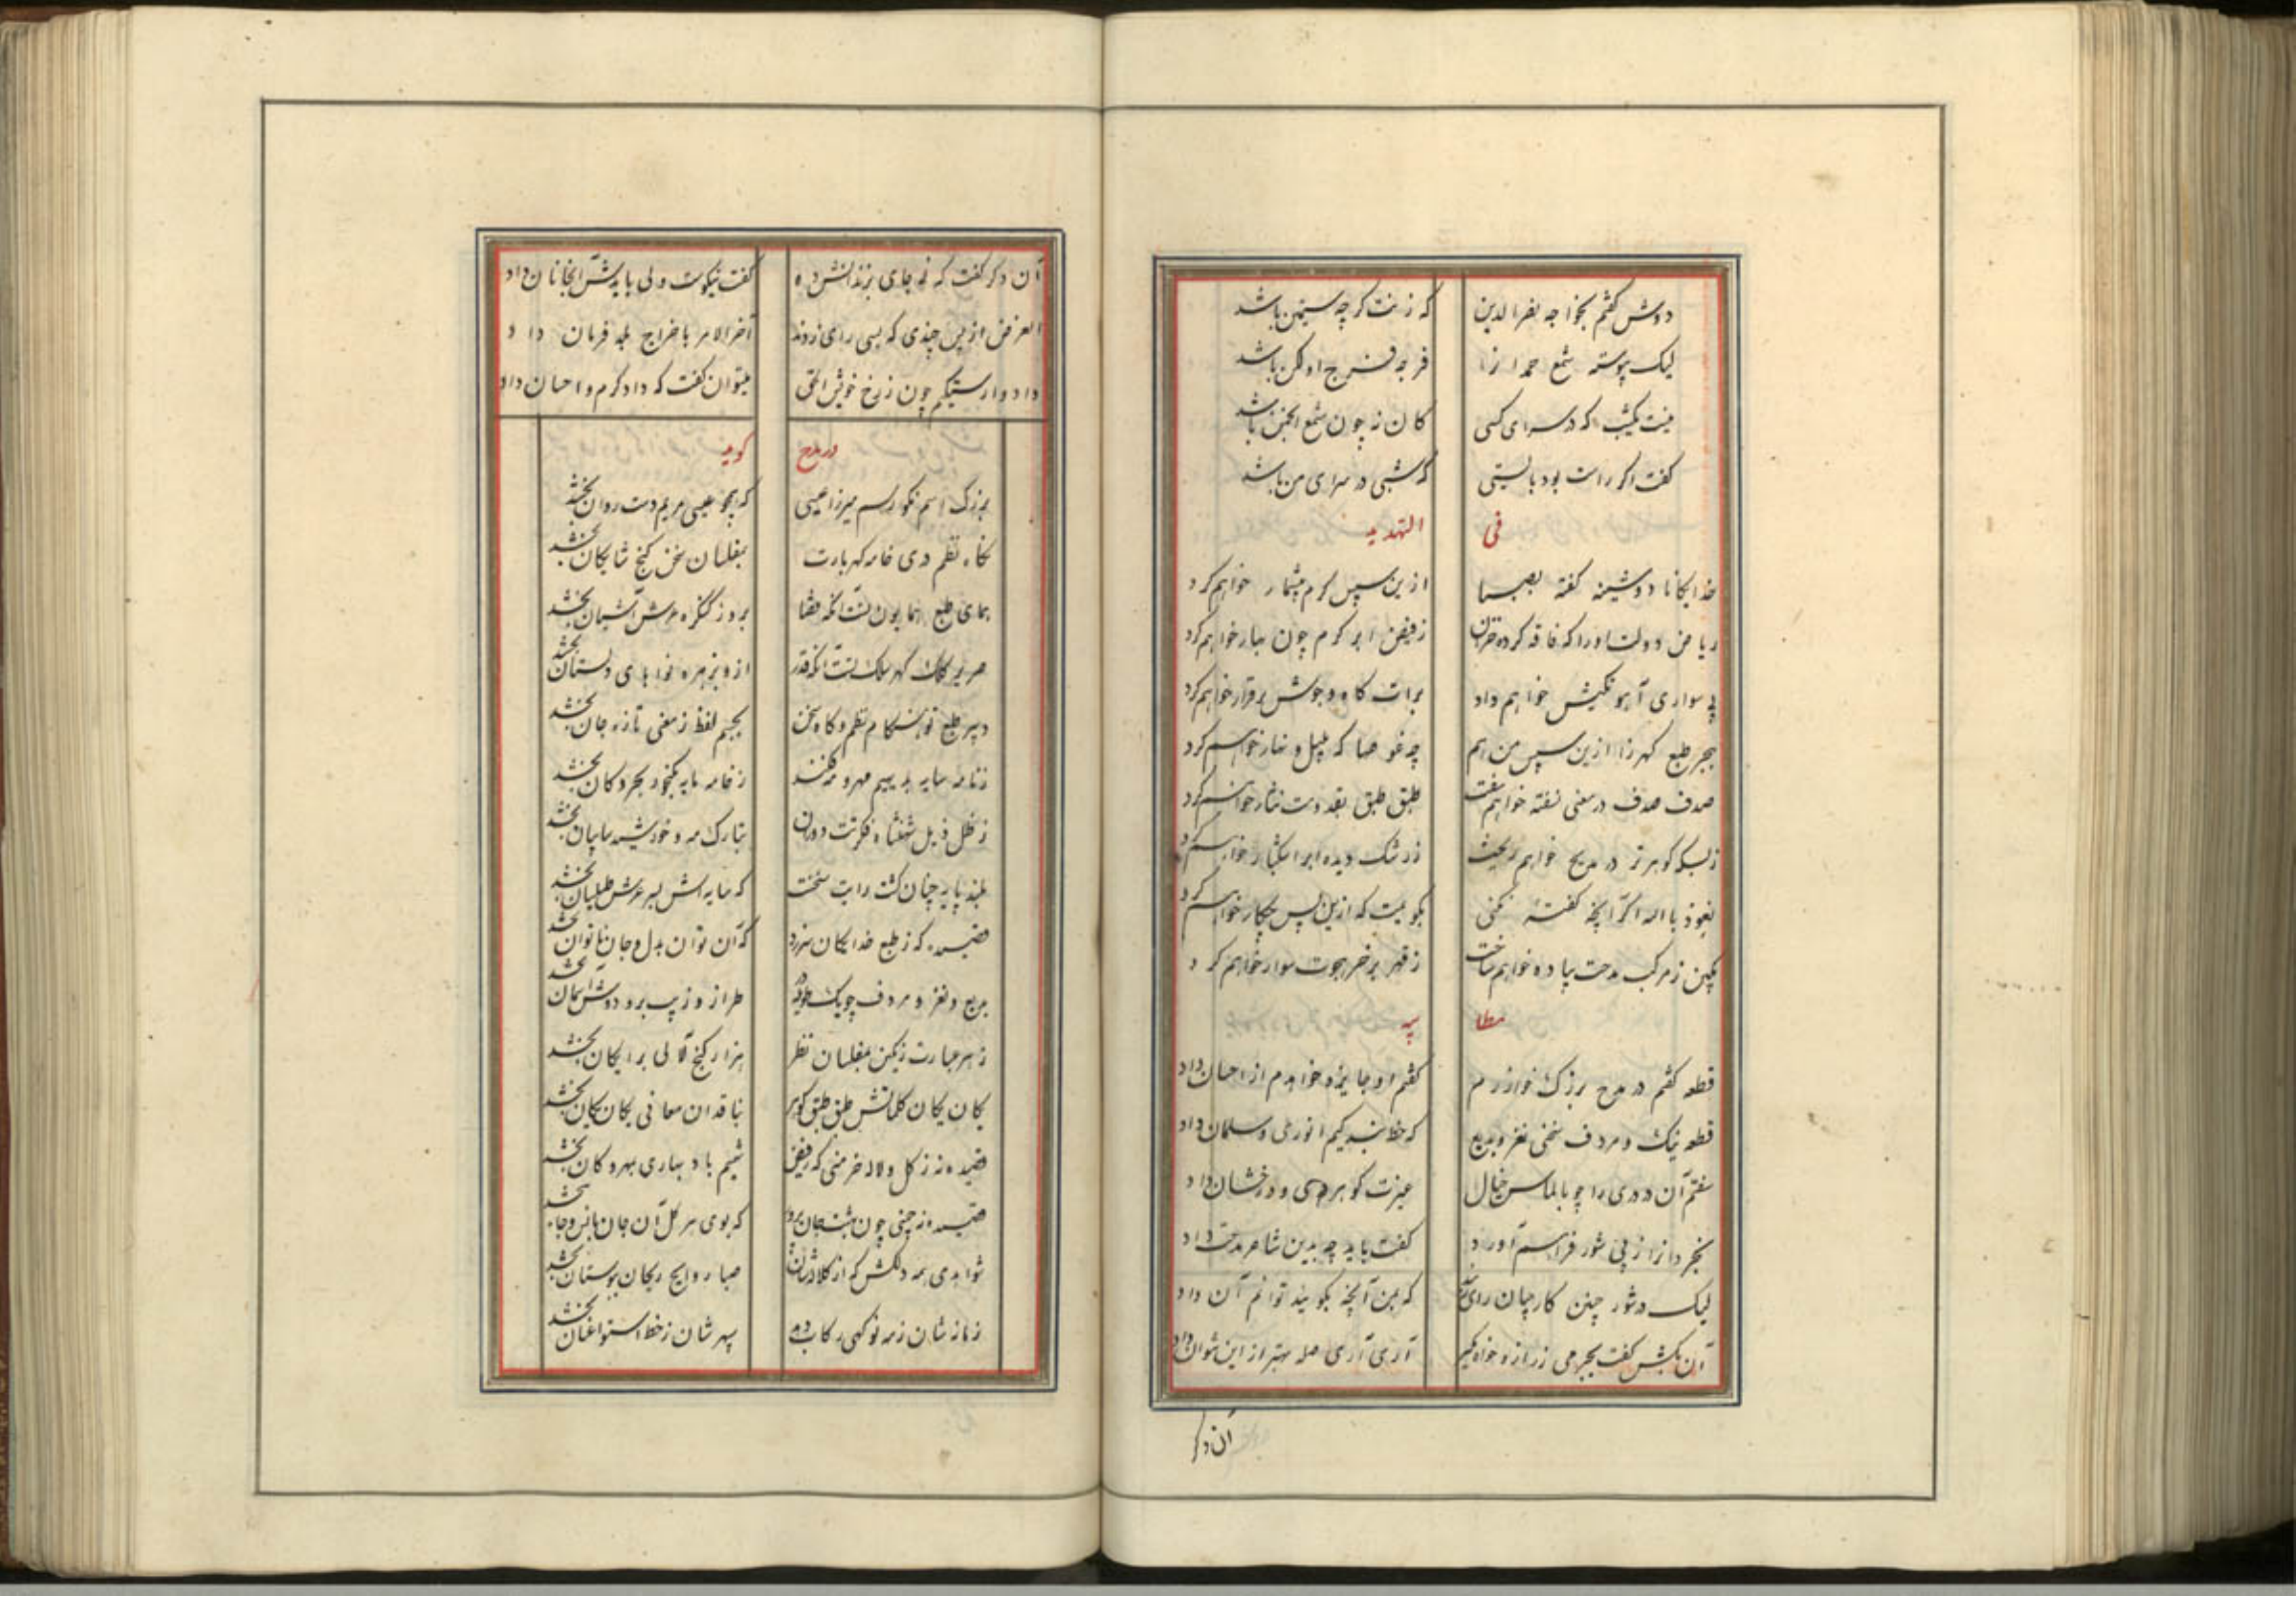 دوش گفتم بخواجه فخرالدین که زنت گرچه سیمتن باشد
لیک پیوسته شمع حمدانرا فرجه فرج او لگن باشد
نیست یکشب که در سرای کسی کان زن چون شمع انجمن باشد
گفت اگر راست بود بایستی که شبی در سرای من باشد
فی التهدید
خدایگانا دوشینه گفته بصبا ازین سپس کرم بیشمار خواهم کرد
ریاض دولت او را که فاقه کرده خزان زفیض ابر کرم چون بهار خواهم کرد
پی سواری آهو تکیش خواهم داد برات کاه و جوش برقرار خواهم کرد
ببحر طبع گهرزا ازین سپس من هم چه غوصها که بلیل و نهار خواهم کرد
صدف صدف در معنی نسفته خواهم سفت طبق طبق بقدومت نثار خواهم کرد
زبسکه گوهر تر در مدیح خواهم ریخت زرشک دیده ابر اشکبار خواهم کرد
نعوذ بالله اگر آنچه گفتهٔ نکنی بگویمت که ازین پس چکار خواهم کرد
زمرکب مدحت پیاده خواهم ساخت زقهر بر خر هجوت سوار خواهم کرد
مطایبه
قطعه گفتم در مدح بزرگ خوارزم گفتم او جایزه خواهدم از احسان داد
قطعه نیک و مردف سخنی نغز و بدیع که خط بندگیم انوری و سلمان داد
سفتم آن در دری را چو بالماس خیال غیرت گوهر و درخشان داد
از پی شور فراهم آورد گفت باید چه بدین شاعر مدحت داد
لیک در شور چنین کار چنان رای که من آنچه بگوئید توانم آن داد
آن یکش گفت بجرمی زر ازو خواه و بگیر آری آری صله بهتر از این نتوان داد
آن دگر
آن دگر گفت که نی جای بزندانش ده گفت نیکوست ولی بایدش آنجا نان داد
الغرض ازین چندی که بسی رای زدند آخرالامر باخراج بلد فرمان داد
داد وارستگیم چون زرخ خویش الحق میتوان گفت که داد کرم و احسان داد
در مدح گوید
بزرگ اسم نکو رسم میرزا عیسی که همچو عیسی مریم دمت روان بخشد
بگاه نظم دری خامه گهربارت بمفلسان سخن گنج شایگان بخشد
همای طبع همایون تست آنکه قضا بروز کنگره عرش آشیان بخشد
صریر کلک گهر سلک تست آنکه قدر ازو بزهره نواهای دلستان بخشد
دبیر طبع تو هنگام نظم و گاه سخن بجسم لفظ زمعنی تازه جان بخشد
زنامه سایه بدیهیم مهر و مه فکند زخامه مایه بگنجور بحر و کان بخشد
زظل ذیل شهنشاه فکرتت دوران بتارک مه و خورشید سایبان بخشد
بلند پایه چنان گشت رایت سخنت که سایه اش بسر عرش طیلسان بخشد
قصیده که زطبع خدایگان سرزد که آن توان بدل و جان ناتوان بخشد
بدیع و نغز و مردف چو یک طراز و زیب بر و دوش آسمان بخشد
زهر عبارت رنگین بمفلسان نظر هزار گنج لآلی برایگان بخشد
یگان یگان کلماتش طبق طبق گوهر بناقدان معانی یگان یگان بخشد
قصیده نه زگل و لاله خرمنی که زفیض شمیم باد بهاری بهر و کان بخشد
قصیده نه چمنی چون بهشت جان پرور که بوی هر گل آن جان بانس و جان بخشد
شواهدی همه دلکش که از کلاله‌شان صبا روایح ریحان ببوستان بخشد
زمانه شان زمه نو گهی رکاب دهد سپهر شان زخط استوا عنان بخشد